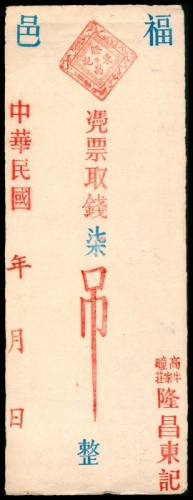 福邑
憑票取錢柒吊整
高牛家疃莊
隆昌東記
中華民國 年 月 日